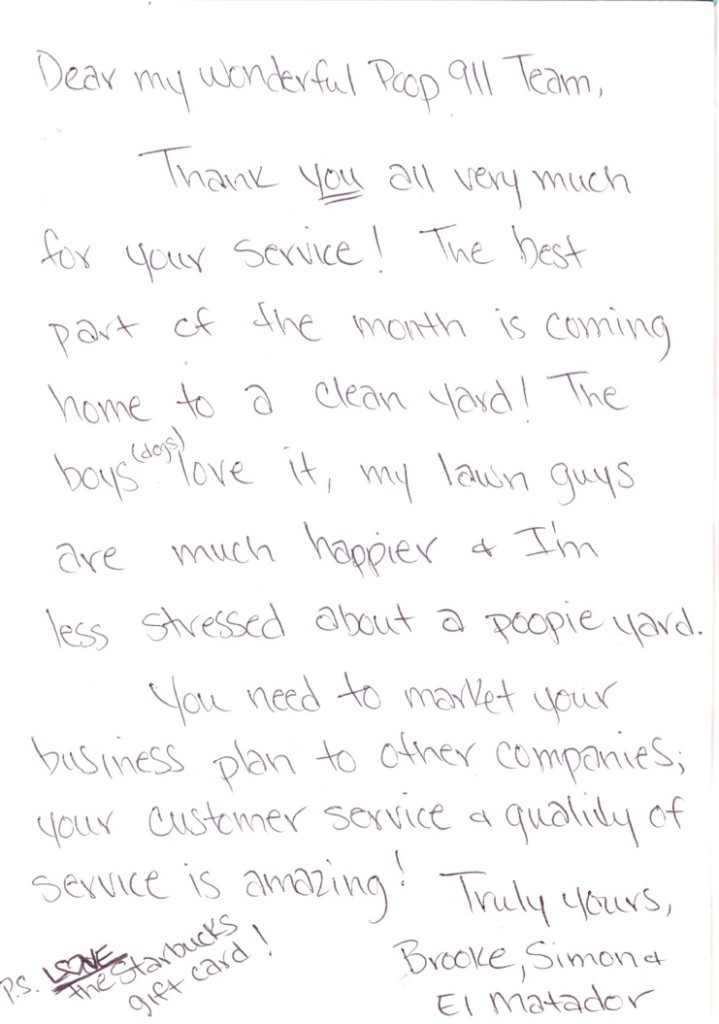 Dear my wonderful Poop 911 Team,
Thank you all very much
for your service! The best
part of the month is coming
home to a clean yard! The
boys (dogs) love it, my lawn guys
are much happier & I'm
less stressed about a poopie yard.
You need to market your
business plan to other companies;
your customer service & quality of
service is amazing!
Truly yours,
Brooke, Simon &
El Matador
P.S. LOVE
the Starbucks
gift card!